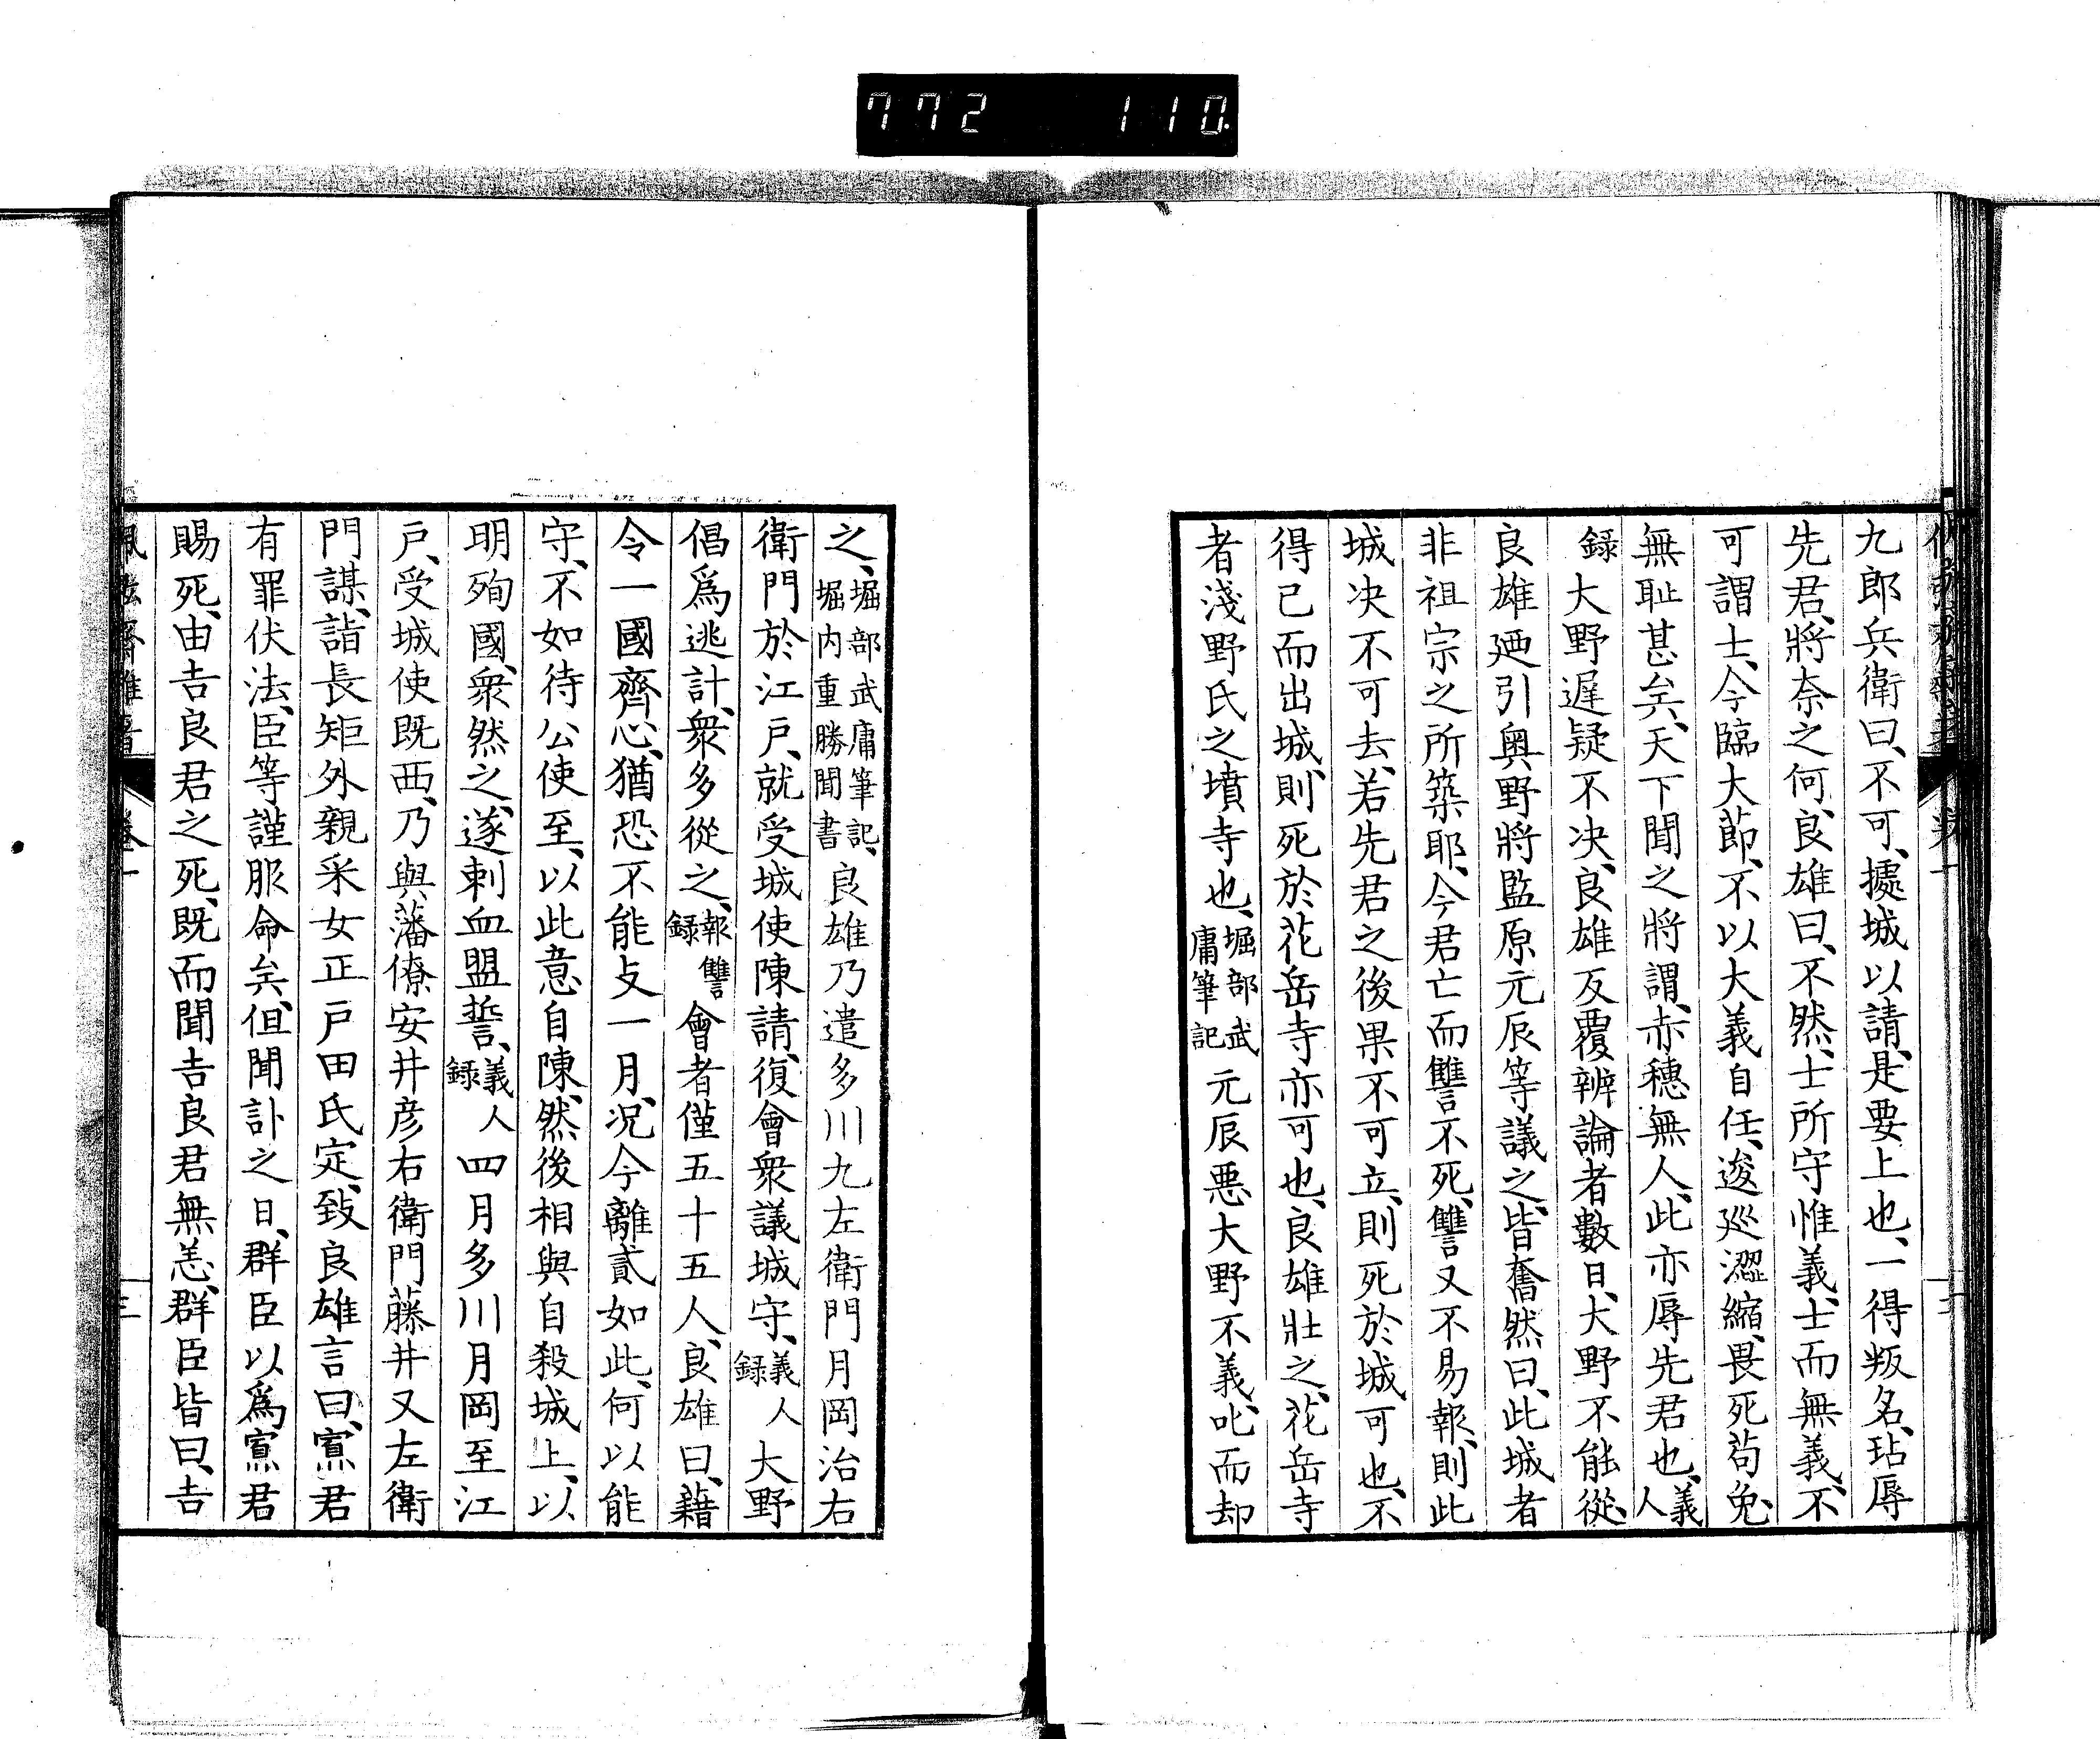 772 110
九郎兵衛曰、不可、據城以請、是要上也、一得叛名、玷辱
先君、將奈之何、良雄曰、不然、士所守惟義、士而無義、不
可謂士、今臨大節、不以大義自任、逡巡澀縮、畏死苟免、
無恥甚矣、天下聞之將謂、赤穗無人、此亦辱先君也、義人
録大野遲疑不决、良雄反覆辨論者數日、大野不能從、
良雄廼引奥野將監原元辰等議之、皆奮然曰、此城者
非祖宗之所築耶、今君亡而讐不死、讐又不易報、則此
城决不可去、若先君之後果不可立、則死於城、可也、不
得已而出城、則死於花岳寺亦可也、良雄壯之、花岳寺
者淺野氏之墳寺也、堀部武庸筆記元辰惡大野不義、叱而却
之、堀部武庸筆記、堀内重勝聞書良雄乃遣多川九左衛門月岡治右
衛門於江戸、就受城使陳請、復會衆議城守、義人録大野
倡爲逃計、衆多從之、報讐録會者僅五十五人、良雄曰、藉
令一國齊心、猶恐不能支一月、况今離貳如此、何以能
守、不如待公使至、以此意自陳、然後相與自殺城上、以
明殉國、衆然之、遂刺血盟誓、義人録四月多川月岡至江
戸、受城使既西、乃與藩僚安井彦右衛門藤井又左衛
門謀、詣長矩外親采女正戸田氏定、致良雄言曰、寡君
有罪伏法、臣等謹服命矣、但聞訃之日、群臣以爲寡君
賜死、由吉良君之死、既而聞吉良君無恙、群臣皆曰、吉
佩弦齋雜著 卷一 三